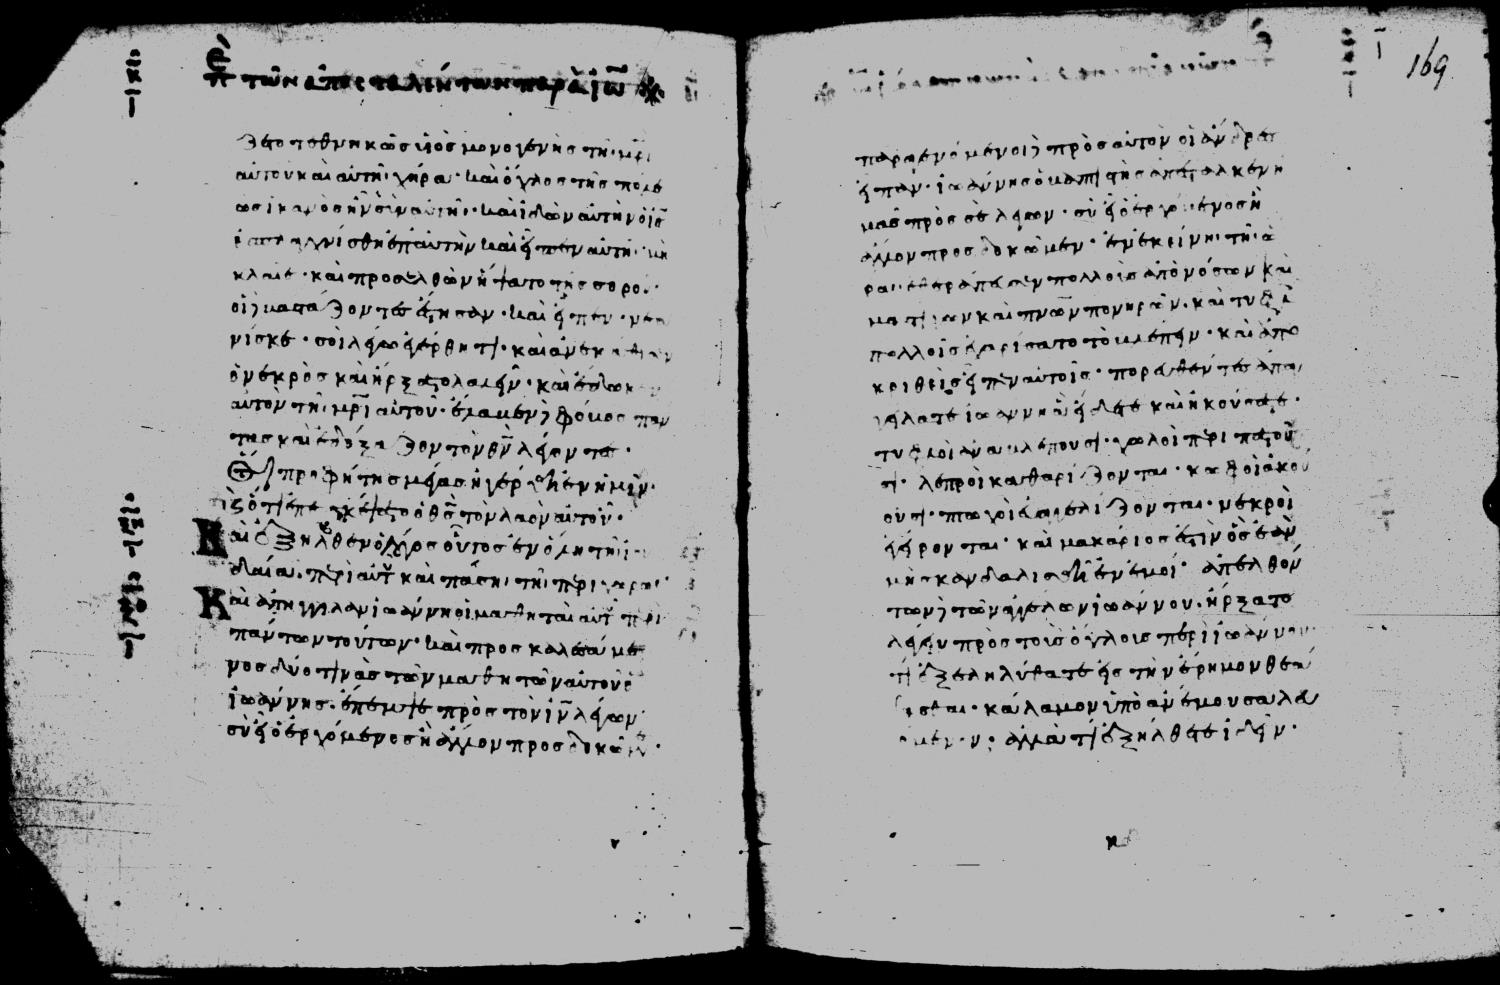 τῶν ἀποσταλέντων παρὰ ἰω
169
τεθνηκὼς υἱὸς μονογενὴς τῆ μρι
αὐτοῦ καὶ αὐτὴ χήρα· καὶ ὄχλος τῆς πόλε
ως ἱκανὸς ἦν σὺν αὐτῆ· καὶ ἰδὼν αὐτὴν ὁ ις
ἐπ αὐτὴν καὶ εἶπεν αὐτῆ· μὴ
κλαῖε· καὶ προσελθὼν ἥψατο τῆς σοροῦ·
οἱ βαστάζοντες ἔστησαν· καὶ εἶπεν· νεα
νίσκε· σοὶ λέγω ἐγέρθητι· καὶ ἀνεκάθισεν
ὁ νεκρὸς καὶ ἤρξατο λαλεῖν· καὶ ἔδωκεν
αὐτὸν τῆ μρι αὐτοῦ· ἔλαβεν φόβος παν
τας καὶ ἐδόξαζον τὸν θν λέγοντες·
ὅτι προφήτης μέγας ἠγέρθη ἐν ἡμῖν·
ὁ θς τὸν λαὸν αὐτοῦ·
καὶ ἐξῆλθεν ὁ λόγος οὗτος ἐν ὅλη τῆ ἰου
δαία περὶ αὐτοῦ καὶ πάση τῆ περιχώρω
καὶ ἀπήγγειλαν ἰωάννη οἱ μαθηταὶ αὐτοῦ περὶ
πάντων τούτων· καὶ προσκαλεσάμε
νος δύο τινὰς τῶν μαθητῶν αὐτοῦ ὁ
ἰωάννης· ἔπεμψε πρὸς τὸν ιν λέγων
σὺ εἶ ὁ ἐρχόμενος ἢ ἄλλον προσδοκῶμεν·
παραγενόμενοι πρὸς αὐτὸν οἱ ἄνδρες
εἶπον· ἰωάννης ὁ βαπτιστὴς ἀπέσταλκεν ἡ
μᾶς πρὸς σὲ λέγων· σὺ εἶ ὁ ἐρχόμενος ἢ
ἄλλον προσδοκῶμεν· ἐν ἐκείνη τῆ ὥ
ρα ἐθεράπευσεν πολλοὺς ἀπὸ νόσων καὶ
μαστίγων καὶ πνων πονηρῶν· καὶ τυφλοῖς
πολλοῖς ἐχαρίσατο τὸ βλέπειν· καὶ ἀπο
κριθεὶς εἶπεν αὐτοῖς· πορευθέντες ἀπαγ
γείλατε ἰωάννη ἃ εἴδετε καὶ ἠκούσατε·
τυφλοὶ ἀναβλέπουσι· χωλοὶ περιπατοῦ
σι· λεπροὶ καθαρίζονται· κωφοὶ ἀκού
ουσι· πτωχοὶ εὐαγγελίζονται· νεκροὶ
ἐγείρονται· καὶ μακάριός ἐστιν ὃς ἐὰν
μὴ σκανδαλισθῆ ἐν ἐμοί· ἀπελθόν
των τῶν ἀγγέλων ἰωάννου· ἤρξατο
λέγειν πρὸς τοὺς ὄχλους περὶ ἰωάννου
τί ἐξεληλύθατε εἰς τὴν ἔρημον θεά
σασθαι· κάλαμον ὑπὸ ἀνέμου σαλευ
όμενον· ἀλλὰ τί ἐξήλθετε ἰδεῖν·